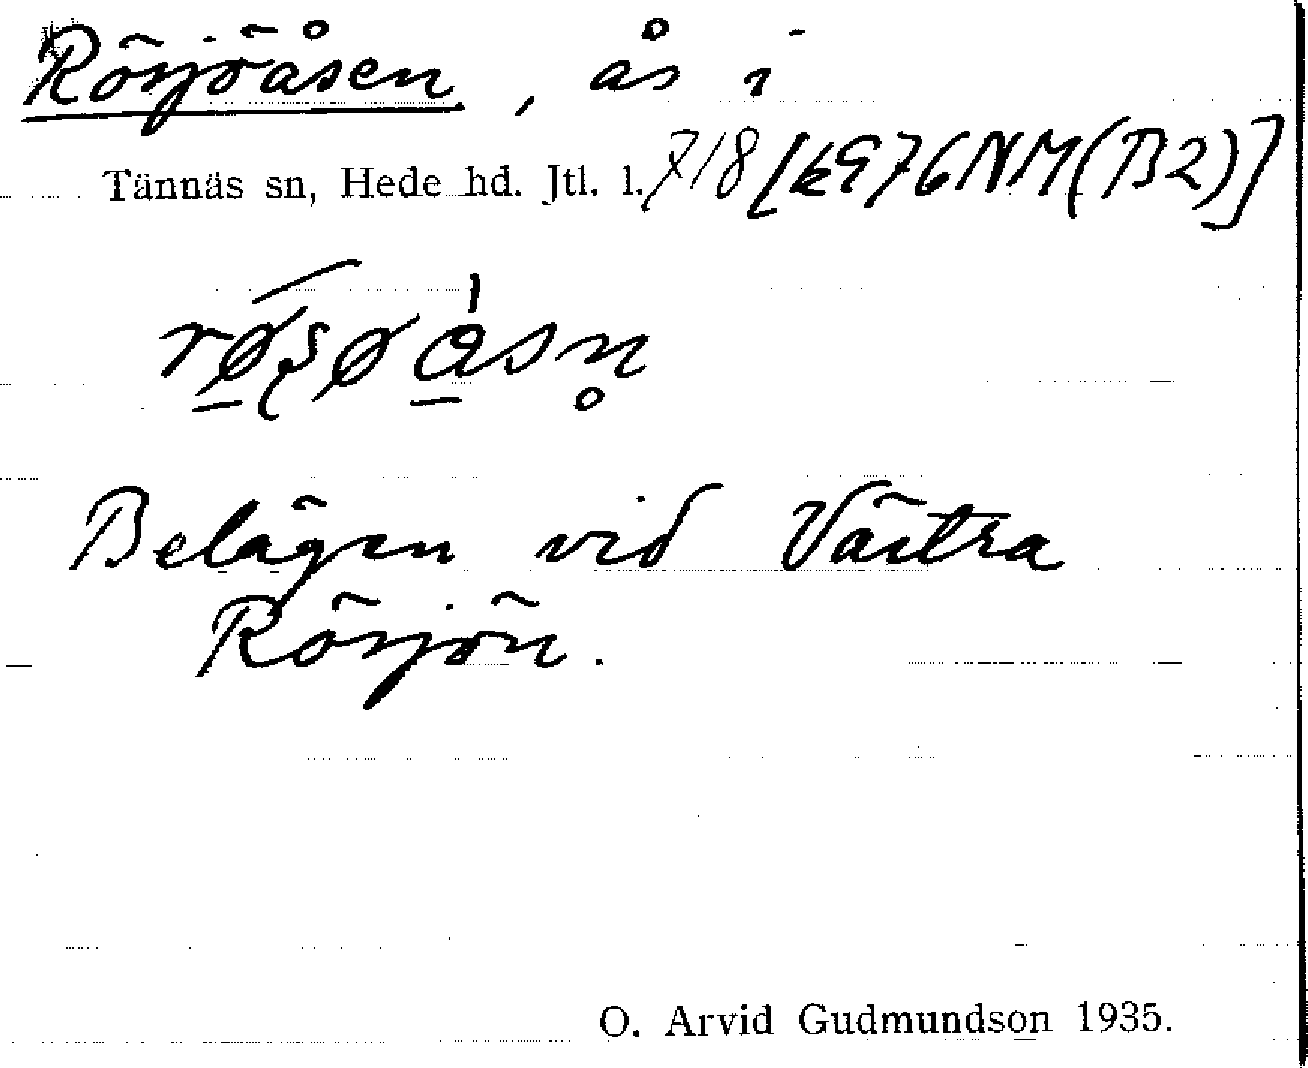 Rösjöåsen, ås i
Tännäs sn, Hede hd. Jtl. l. 7/8 [k976NM(B2)]
Belägen vid Västra
Rösjön.
O. Arvid Gudmundson 1935.